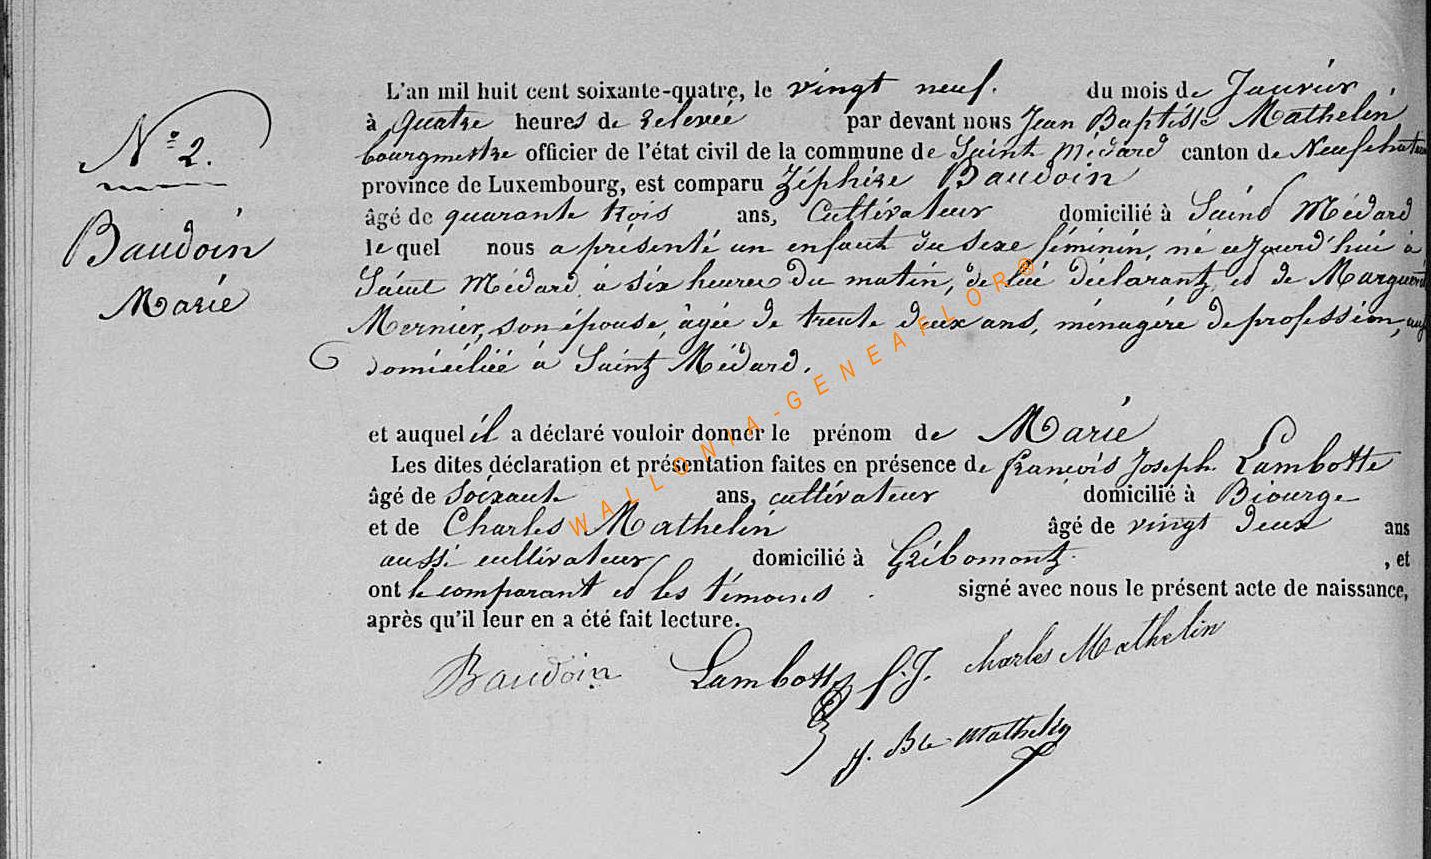 N° 2.
Baudoin
Marie
L'an mil huit cent soixante-quatre, le vingt neuf. du mois de Janvier
à quatre heures de relevée par devant nous Jean Baptiste Mathelin
bourgmestre officier de l'état civil de la commune de Saint Médard canton de Neufchateau
province de Luxembourg, est comparu Zéphire Baudoin
âgé de quarante trois ans, Cultivateur domicilié à Saint Médard
le quel nous a présenté un enfant du sexe féminin, né aujourd'hui à
Saint Médard à six heures du matin, de lui déclarant, et de Marguerite
Mernier, son épouse, âgée de trente deux ans, ménagère de profession,
domiciliée à Saint Médard.
et auquel il a déclaré vouloir donner le prénom de Marie
Les dites déclaration et présentation faites en présence de françois Joseph Lambotte
âgé de Soixante ans, cultivateur domicilié à Biourge
et de Charles Mathelin âgé de vingt deux ans
aussi cultivateur domicilié à Gribomont , et
ont le comparant et les témoins signé avec nous le présent acte de naissance,
après qu'il leur en a été fait lecture.
Baudoin Lambotte f. J. charles Mathelin
J. Bte Mathelin
WALLONIA-GENEAFLOR®